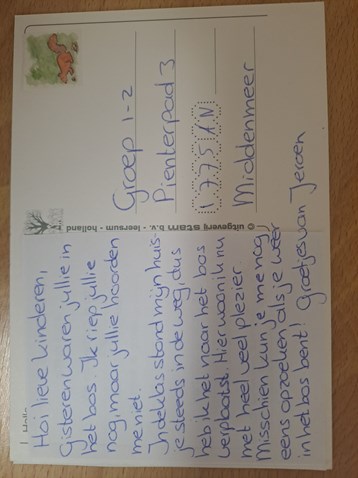 Hoi lieve kinderen,
Gisteren waren jullie in
het bos. Ik riep jullie
nog, maar jullie hoorden
me niet.
In de klas stond mijn huis-
je steeds in de weg, dus
heb ik het naar het bos
verplaatst. Hier woon ik nu
met heel veel plezier
Misschien kun je me nog
eens opzoeken als je weer
in het bos bent! Groetjes van Jeroen
© uitgeverij stam b.v. - leersum - holland
Groep 1-2
Pienterpad 3
1775 AN
Middenmeer